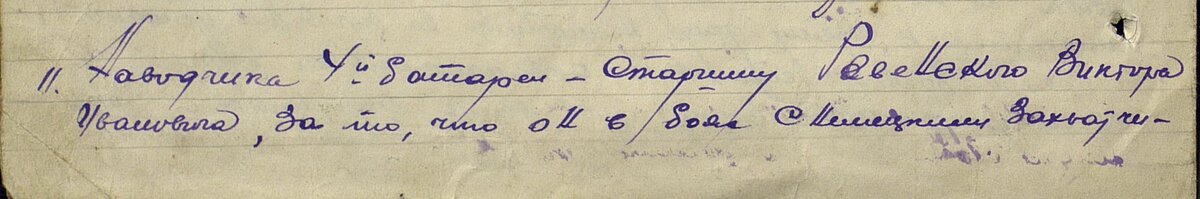 11. Наводчика 4й батареи – Старшину Ревенского Виктора
Ивановича, за то, что он в боях с немецкими захватчи-